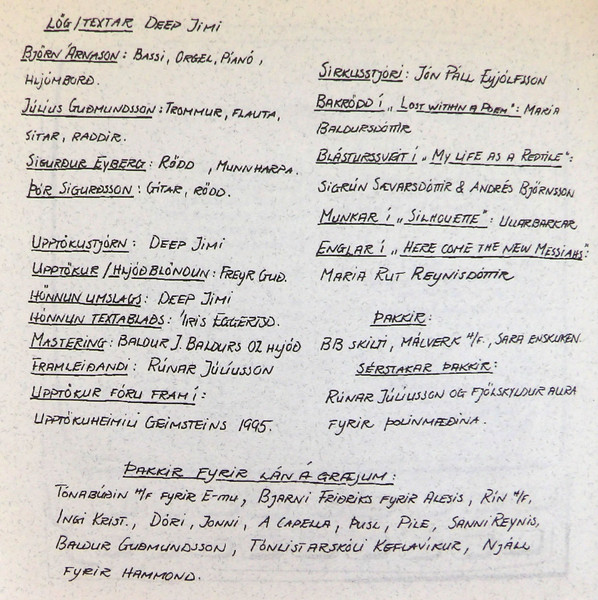 LÖG/TEXTAR DEEP JIMI
BJÖRN ÁRNASON: BASSI, ORGEL, PÍANÓ,
HLJÓMBORÐ.
JÚLÍUS GUÐMUNDSSON: TROMMUR, FLAUTA,
SÍTAR, RADDIR.
SIGURÐUR EYBERG: RÖDD, MUNNHARPA.
ÞÓR SIGURÐSSON: GÍTAR, RÖDD.
UPPTÖKUSTJÓRN: DEEP JIMI
UPPTÖKUR/HLJÓÐBLÖNDUN: FREYR GUÐ.
HÖNNUN UMSLAGS: DEEP JIMI
HÖNNUN TEXTABLAÐS: ÍRIS EGGERTSD.
MASTERING: BALDUR J. BALDURS OZ HLJÓÐ
FRAMLEIÐANDI: RÚNAR JÚLÍUSSON
UPPTÖKUR FÓRU FRAM Í:
UPPTÖKUHEIMILI GEIMSTEINS 1995.
SIRKUSSTJÓRI: JÓN PÁLL EYJÓLFSSON
BAKRÖDD Í „LOST WITHIN A POEM": MARIA
BALDURSDÓTTIR
BLÁSTURSSVEIT Í „MY LIFE AS A REPTILE":
SIGRÚN SÆVARSDÓTTIR & ANDRÉS BJÖRNSSON
MUNKAR Í „SILHOUETTE": ULLARBARKAR
ENGLAR Í „HERE COME THE NEW MESSIAHS":
MARIA RUT REYNISDÓTTIR
ÞAKKIR:
BB SKILTI, MÁLVERK H/F., SARA ENSKUKEN.
SÉRSTAKAR ÞAKKIR:
RÚNAR JÚLÍUSSON OG FJÖLSKYLDUR ALLRA
FYRIR ÞOLINMÆÐINA.
ÞAKKIR FYRIR LÁN Á GRÆJUM:
TÓNABÚÐIN H/F FYRIR E-MU, BJARNI FRIÐRIKS FYRIR ALESIS, RÍN H/F,
INGI KRIST., DÓRI, JONNI, A CAPELLA, PUSL, PILE, SANNI REYNIS,
BALDUR GUÐMUNDSSON, TÓNLISTARSKÓLI KEFLAVÍKUR, NJÁLL
FYRIR HAMMOND.